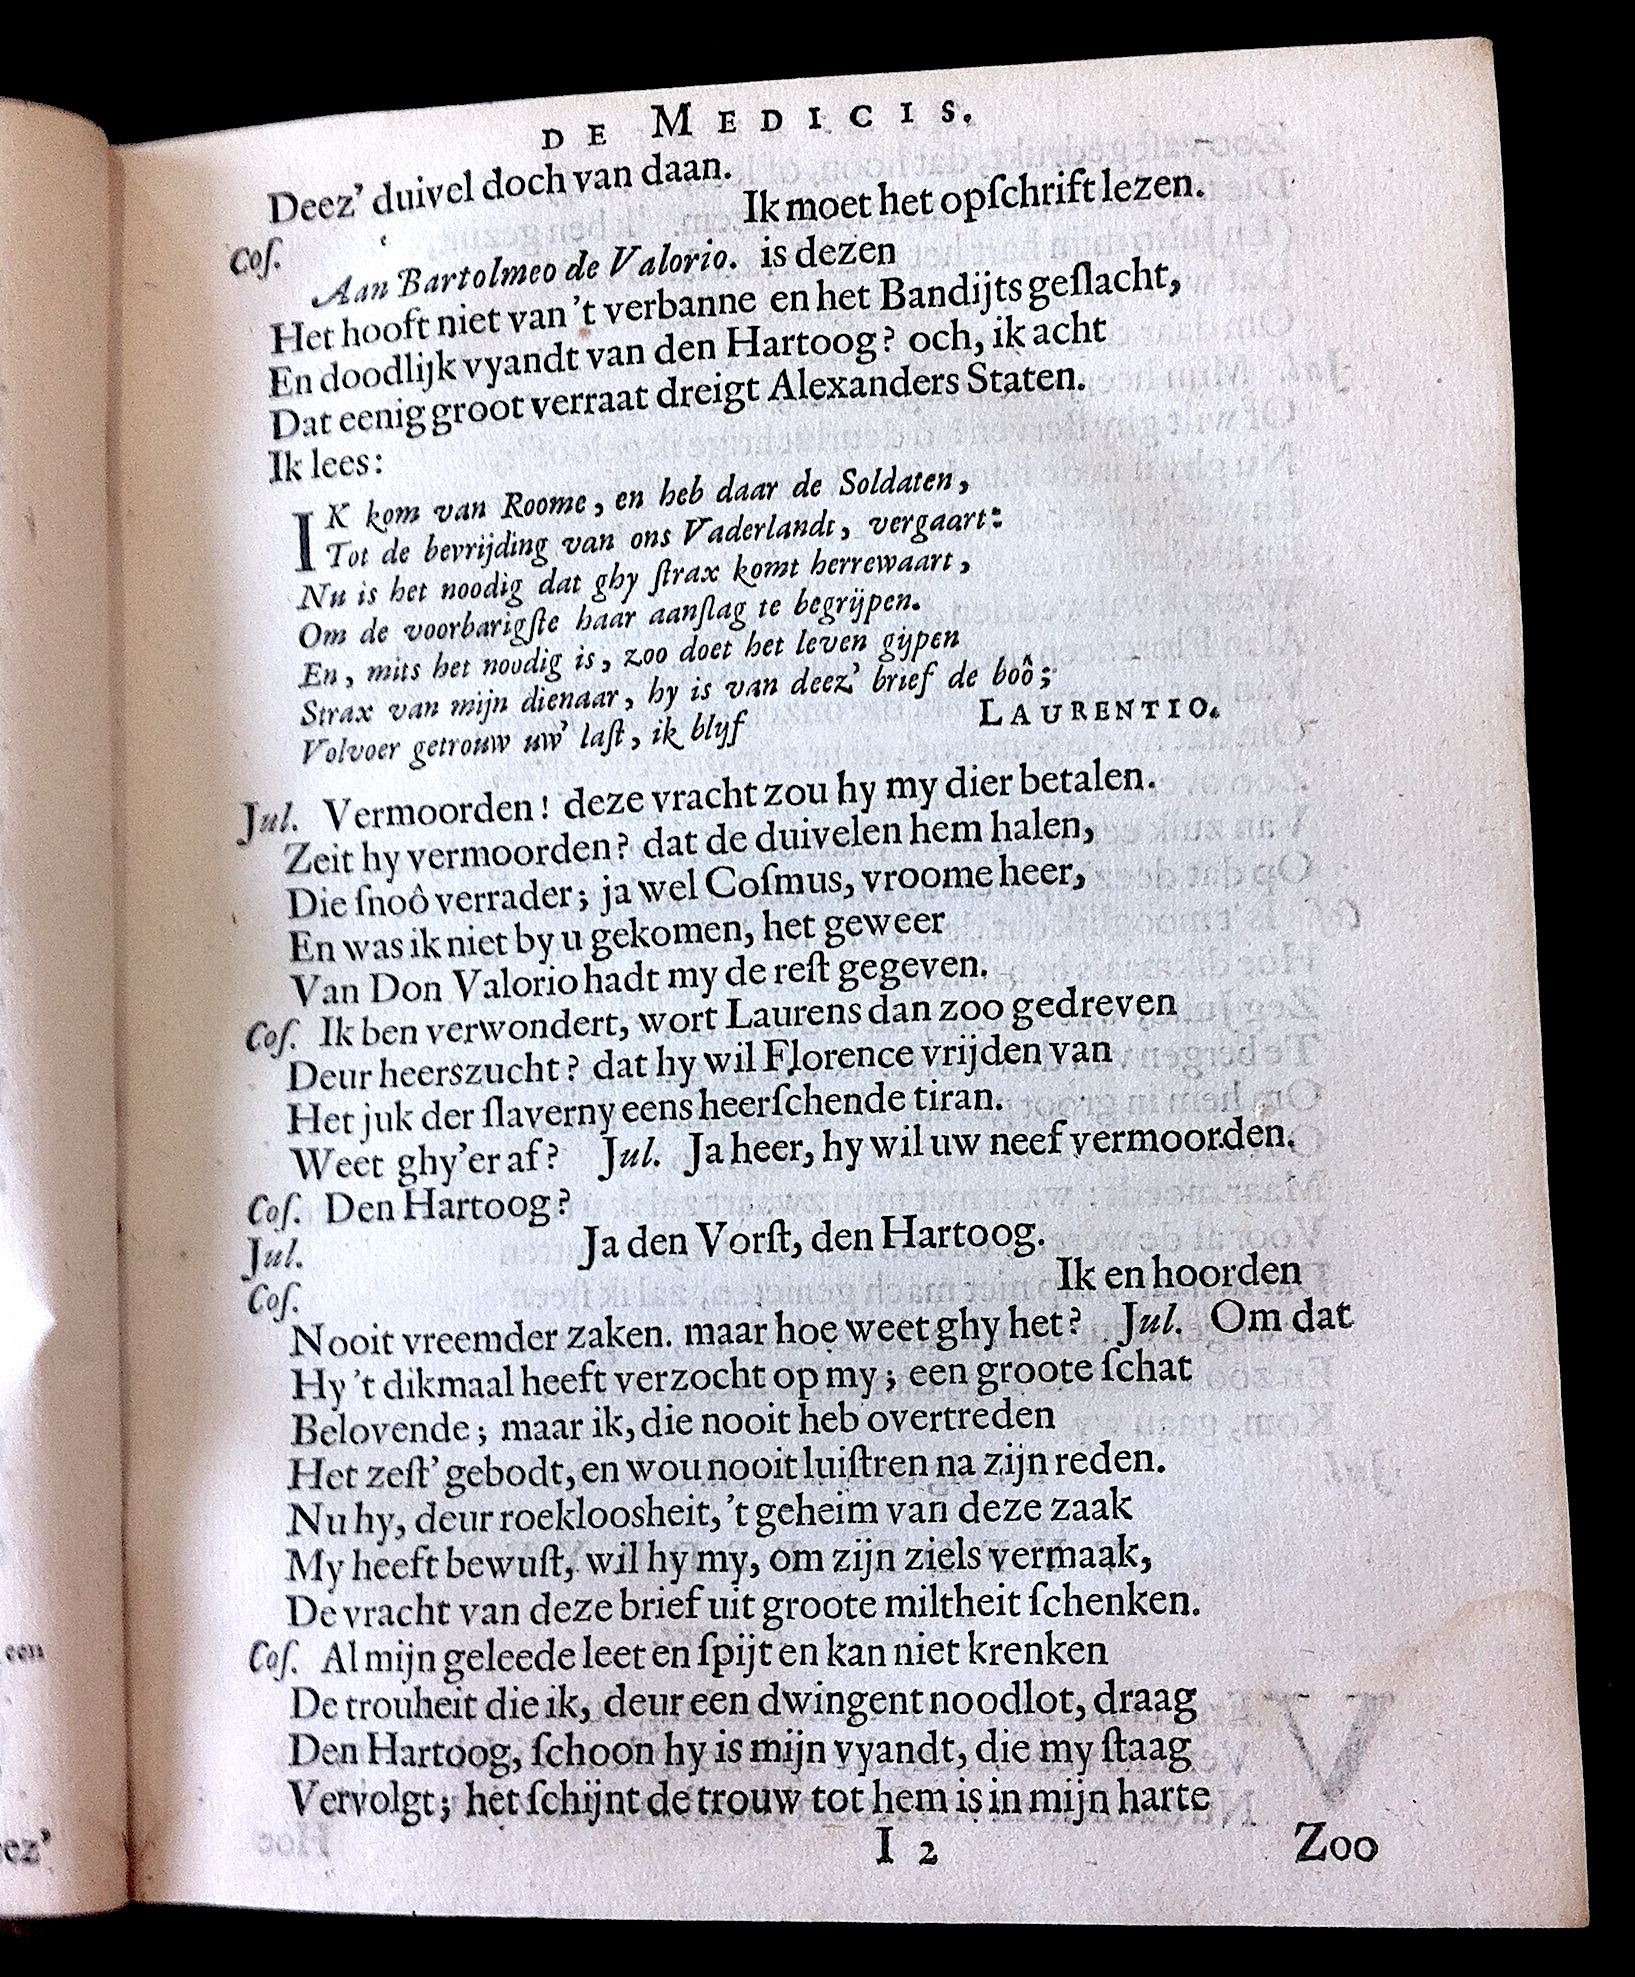 DE MEDICIS.
Deez' duivel doch van daan.
Coſ. Ik moet het opſchrift lezen.
Aan Bartolmeo de Valorio. is dezen
Het hooft niet van 't verbanne en het Bandijts geſlacht,
En doodlijk vyandt van den Hartoog? och, ik acht
Dat eenig groot verraat dreigt Alexanders Staten.
Ik lees:
IK kom van Roome, en heb daar de Soldaten,
Tot de bevrijding van ons Vaderlandt, vergaart:
Nu is het noodig dat ghy ſtrax komt herrewaart,
Om de voorbarigſte haar aanſlag te begrijpen.
En, mits het noodig is, zoo doet het leven gijpen
Strax van mijn dienaar, hy is van deez' brief de boô;
Volvoer getrouw uw' laſt, ik blijf LAURENTIO.
Jul. Vermoorden! deze vracht zou hy my dier betalen.
Zeit hy vermoorden? dat de duivelen hem halen,
Die ſnoô verrader; ja wel Coſmus, vroome heer,
En was ik niet by u gekomen, het geweer
Van Don Valorio hadt my de reſt gegeven.
Coſ. Ik ben verwondert, wort Laurens dan zoo gedreven
Deur heerszucht? dat hy wil Florence vrijden van
Het juk der ſlaverny eens heerſchende tiran.
Weet ghy'er af? Jul. Ja heer, hy wil uw neef vermoorden.
Coſ. Den Hartoog?
Jul. Ja den Vorſt, den Hartoog.
Coſ. Ik en hoorden
Nooit vreemder zaken. maar hoe weet ghy het? Jul. Om dat
Hy 't dikmaal heeft verzocht op my; een groote ſchat
Belovende; maar ik, die nooit heb overtreden
Het zeſt' gebodt, en wou nooit luiſtren na zijn reden.
Nu hy, deur roekloosheit, 't geheim van deze zaak
My heeft bewuſt, wil hy my, om zijn ziels vermaak,
De vracht van deze brief uit groote miltheit ſchenken.
Coſ. Al mijn geleede leet en ſpijt en kan niet krenken
De trouheit die ik, deur een dwingent noodlot, draag
Den Hartoog, ſchoon hy is mijn vyandt, die my ſtaag
Vervolgt; het ſchijnt de trouw tot hem is in mijn harte
I 2 Zoo
een
ez'